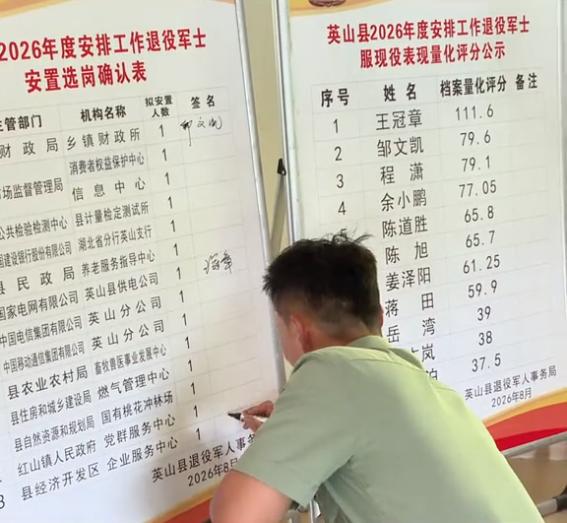 2026年度安排工作退役军士
安置选岗确认表
管部门 机构名称 拟安置人数 签名
财政局 乡镇财政所 1 邹文凯
消费者权益保护中心 1
场监督管理局 信息中心 1
公共检验检测中心 县计量检定测试所 1
国建设银行股份有限公司 湖北省分行英山支行 1
县民政局 养老服务指导中心 1
国家电网有限公司 英山县供电公司 1
中国电信集团有限公司 英山分公司 1
中国移动通信集团有限公司 英山分公司 1
县农业农村局 畜牧兽医事业发展中心 1
县住房和城乡建设局 燃气管理中心 1
县自然资源和规划局 国有桃花冲林场 1
红山镇人民政府 党群服务中心 1
3 县经济开发区 企业服务中心 1
英山县退役军人事务
2026年8月
英山县2026年度安排工作退役军士
服现役表现量化评分公示
序号 姓名 档案量化评分 备注
1 王冠章 111.6
2 邹文凯 79.6
3 程潇 79.1
4 余小鹏 77.05
陈道胜 65.8
陈旭 65.7
姜泽阳 61.25
蒋田 59.9
岳湾 39
岚 38
37.5
英山县退役军人事务局
2026年8月